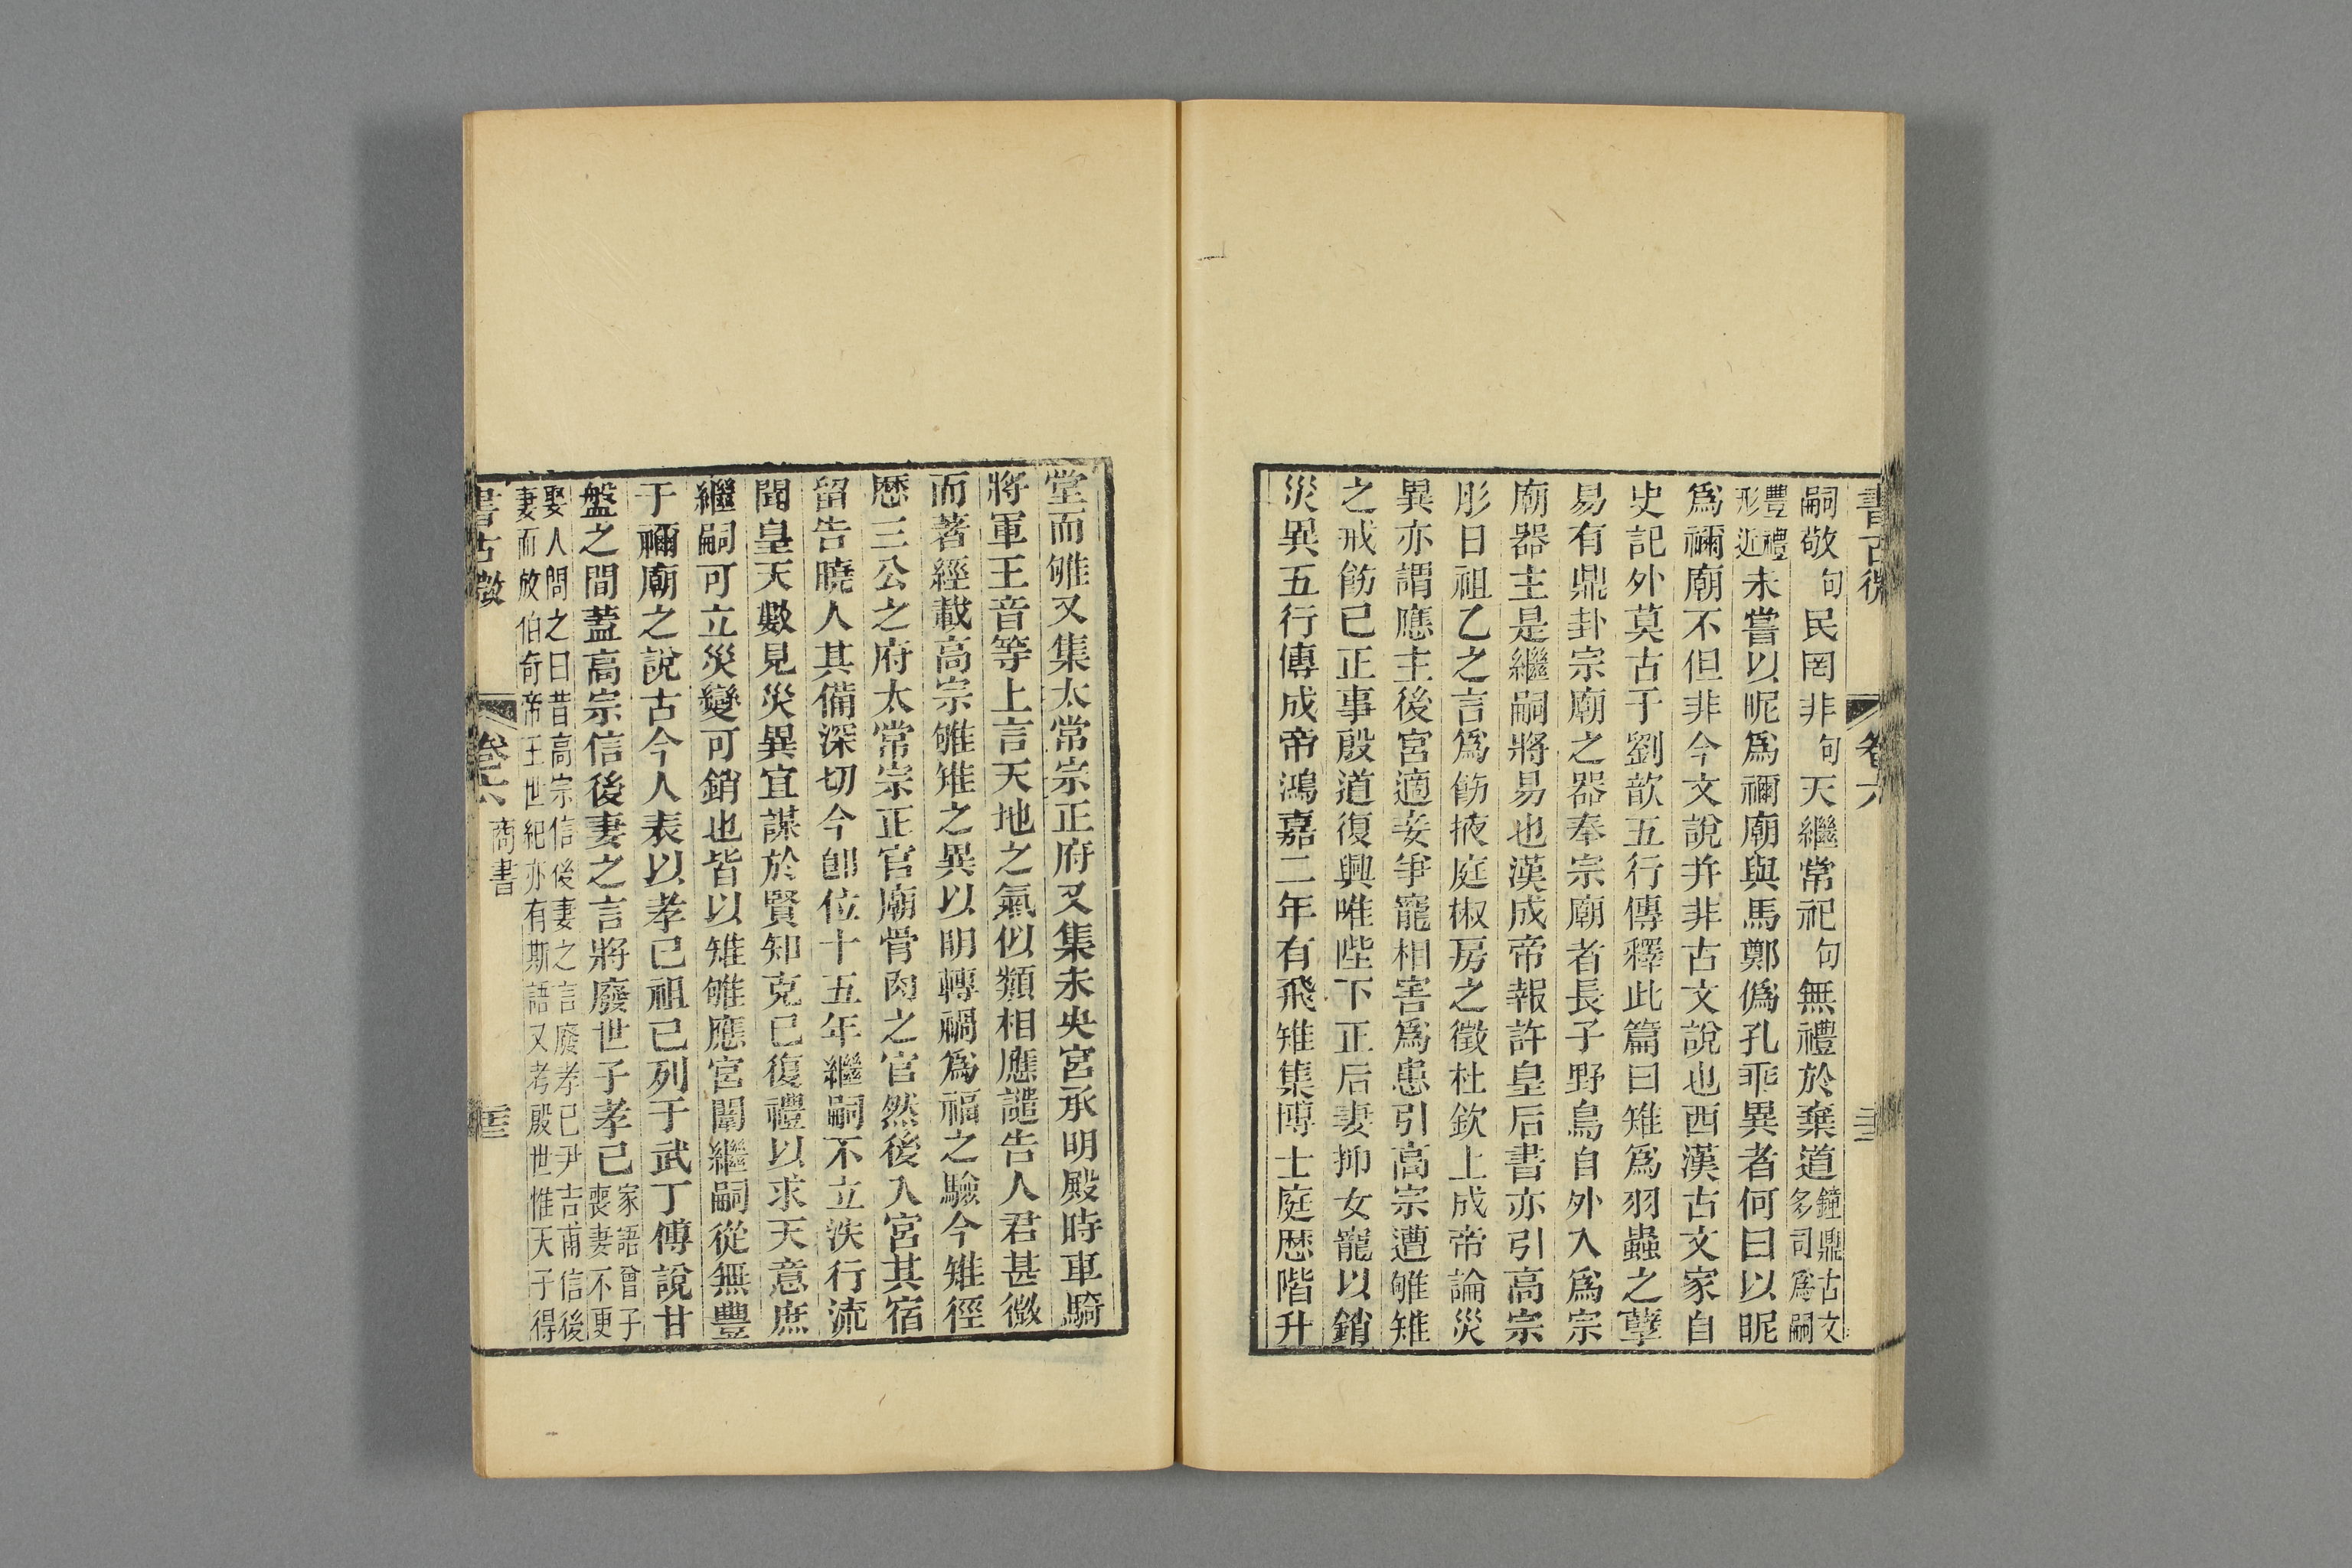 書古微
卷六
嗣敬句民罔非句天繼常祀句無禮於棄道鐘鼎古文多司爲嗣
豐禮形近未嘗以昵爲禰廟與馬鄭僞孔乖異者何曰以昵
爲禰廟不但非今文說并非古文說也西漢古文家自
史記外莫古于劉歆五行傳釋此篇曰雉爲羽蟲之孽
易有鼎卦宗廟之器奉宗廟者長子野鳥自外入爲宗
廟器主是繼嗣將易也漢成帝報許皇后書亦引高宗
肜日祖乙之言爲飭掖庭椒房之徵杜欽上成帝論災
異亦謂應主後宮適妾爭寵相害爲患引高宗遭雊雉
之戒飭己正事殷道復興唯陛下正后妻抑女寵以銷
災異五行傳成帝鴻嘉二年有飛雉集博士庭歷階升
堂而雊又集太常宗正府又集未央宮承明殿時車騎
將軍王音等上言天地之氣似類相應譴告人君甚微
而著經載高宗雊雉之異以明轉禍爲福之驗今雉徑
歷三公之府太常宗正官廟骨肉之官然後入宮其宿
留告曉人其備深切今卽位十五年繼嗣不立泆行流
聞皇天數見災異宜謀於賢知克己復禮以求天意庶
繼嗣可立災變可銷也皆以雉雊應宮闈繼嗣從無豐
于禰廟之說古今人表以孝己祖己列于武丁傅說甘
盤之間蓋高宗信後妻之言將廢世子孝己家語曾子喪妻不更
娶人問之曰昔高宗信後妻之言廢孝己尹吉甫信後妻而放伯奇帝王世紀亦有斯語又考殷世惟天子得
書古微
卷六
商書